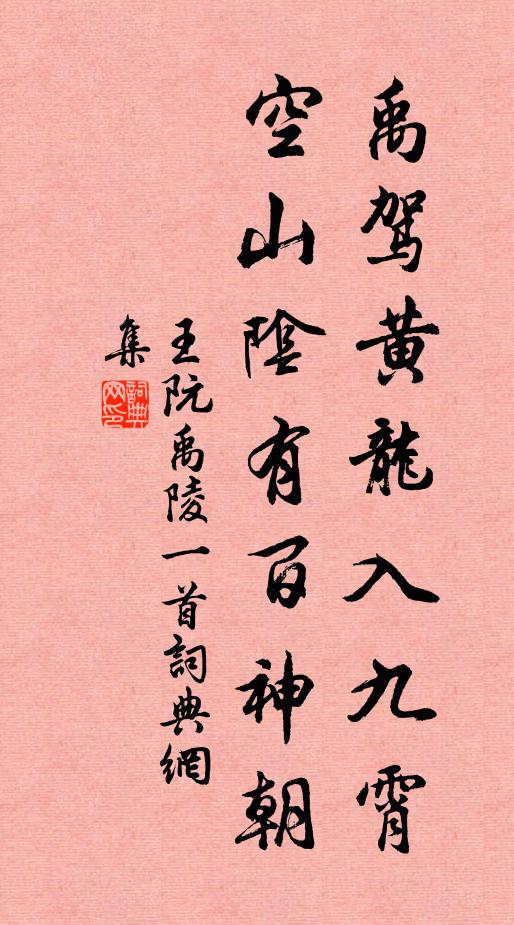 禹駕黃龍入九霄
空山陰有百神朝
王阮禹陵一首詞典網
集
詞典網印